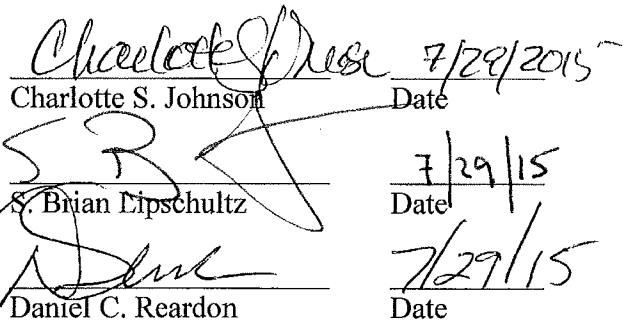 Charlotte S Johnson 7/29/2015
Charlotte S. Johnson Date
7/29/15
S. Brian Lipschultz Date
7/29/15
Daniel C. Reardon Date